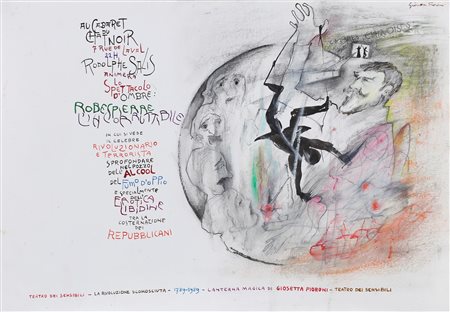 AU CABARET
CHAT DU
NOIR
7 RUE DE LAVAL
22H
RODOLPHE SALIS
ANIMERÀ
LO
SPETTACOLO
D'OMBRE:
ROBESPIERRE
L'INCORRUTTIBILE
IN CUI SI VEDE
IL CELEBRE
RIVOLUZIONARIO
E TERRORISTA
SPROFONDARE
NEL POZZO
DELL' ALCOOL
DEL FUMO D'OPPIO
E SPECIALMENTE
DELL'
EROTICA
LIBIDINE
TRA LA
COSTERNAZIONE
DEI
REPUBBLICANI
TEATRO DEI SENSIBILI - LA RIVOLUZIONE SCONOSCIUTA - 1789-1989 - LANTERNA MAGICA DI GIOSETTA FIORONI - TEATRO DEI SENSIBILI